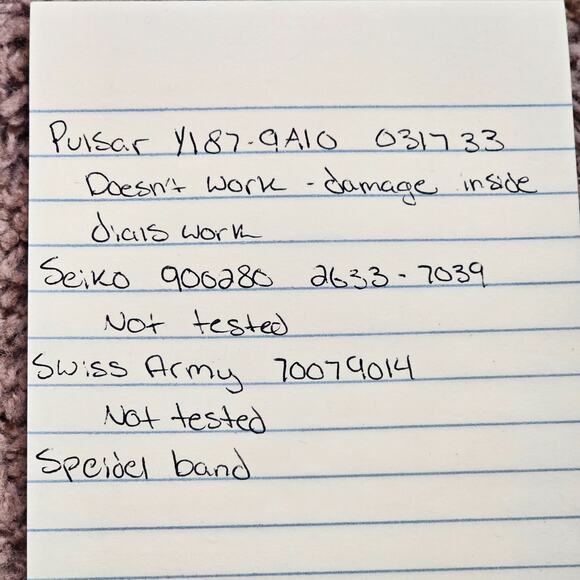 Pulsar Y187-9A10 031733
Doesn't work - damage inside
dials work
Seiko 900280 2633-7039
Not tested
Swiss Army 70079014
Not tested
Speidel band